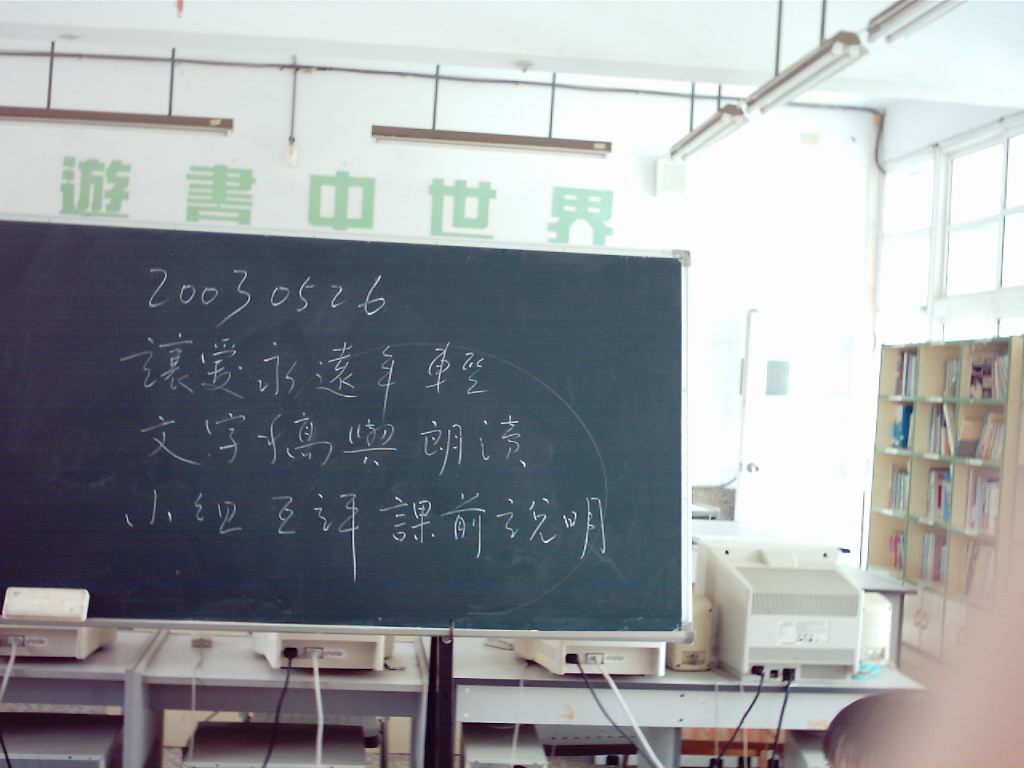 遊書中世界
2003 0526
讓愛永遠年輕
文字稿與朗讀
小組互評 課前說明